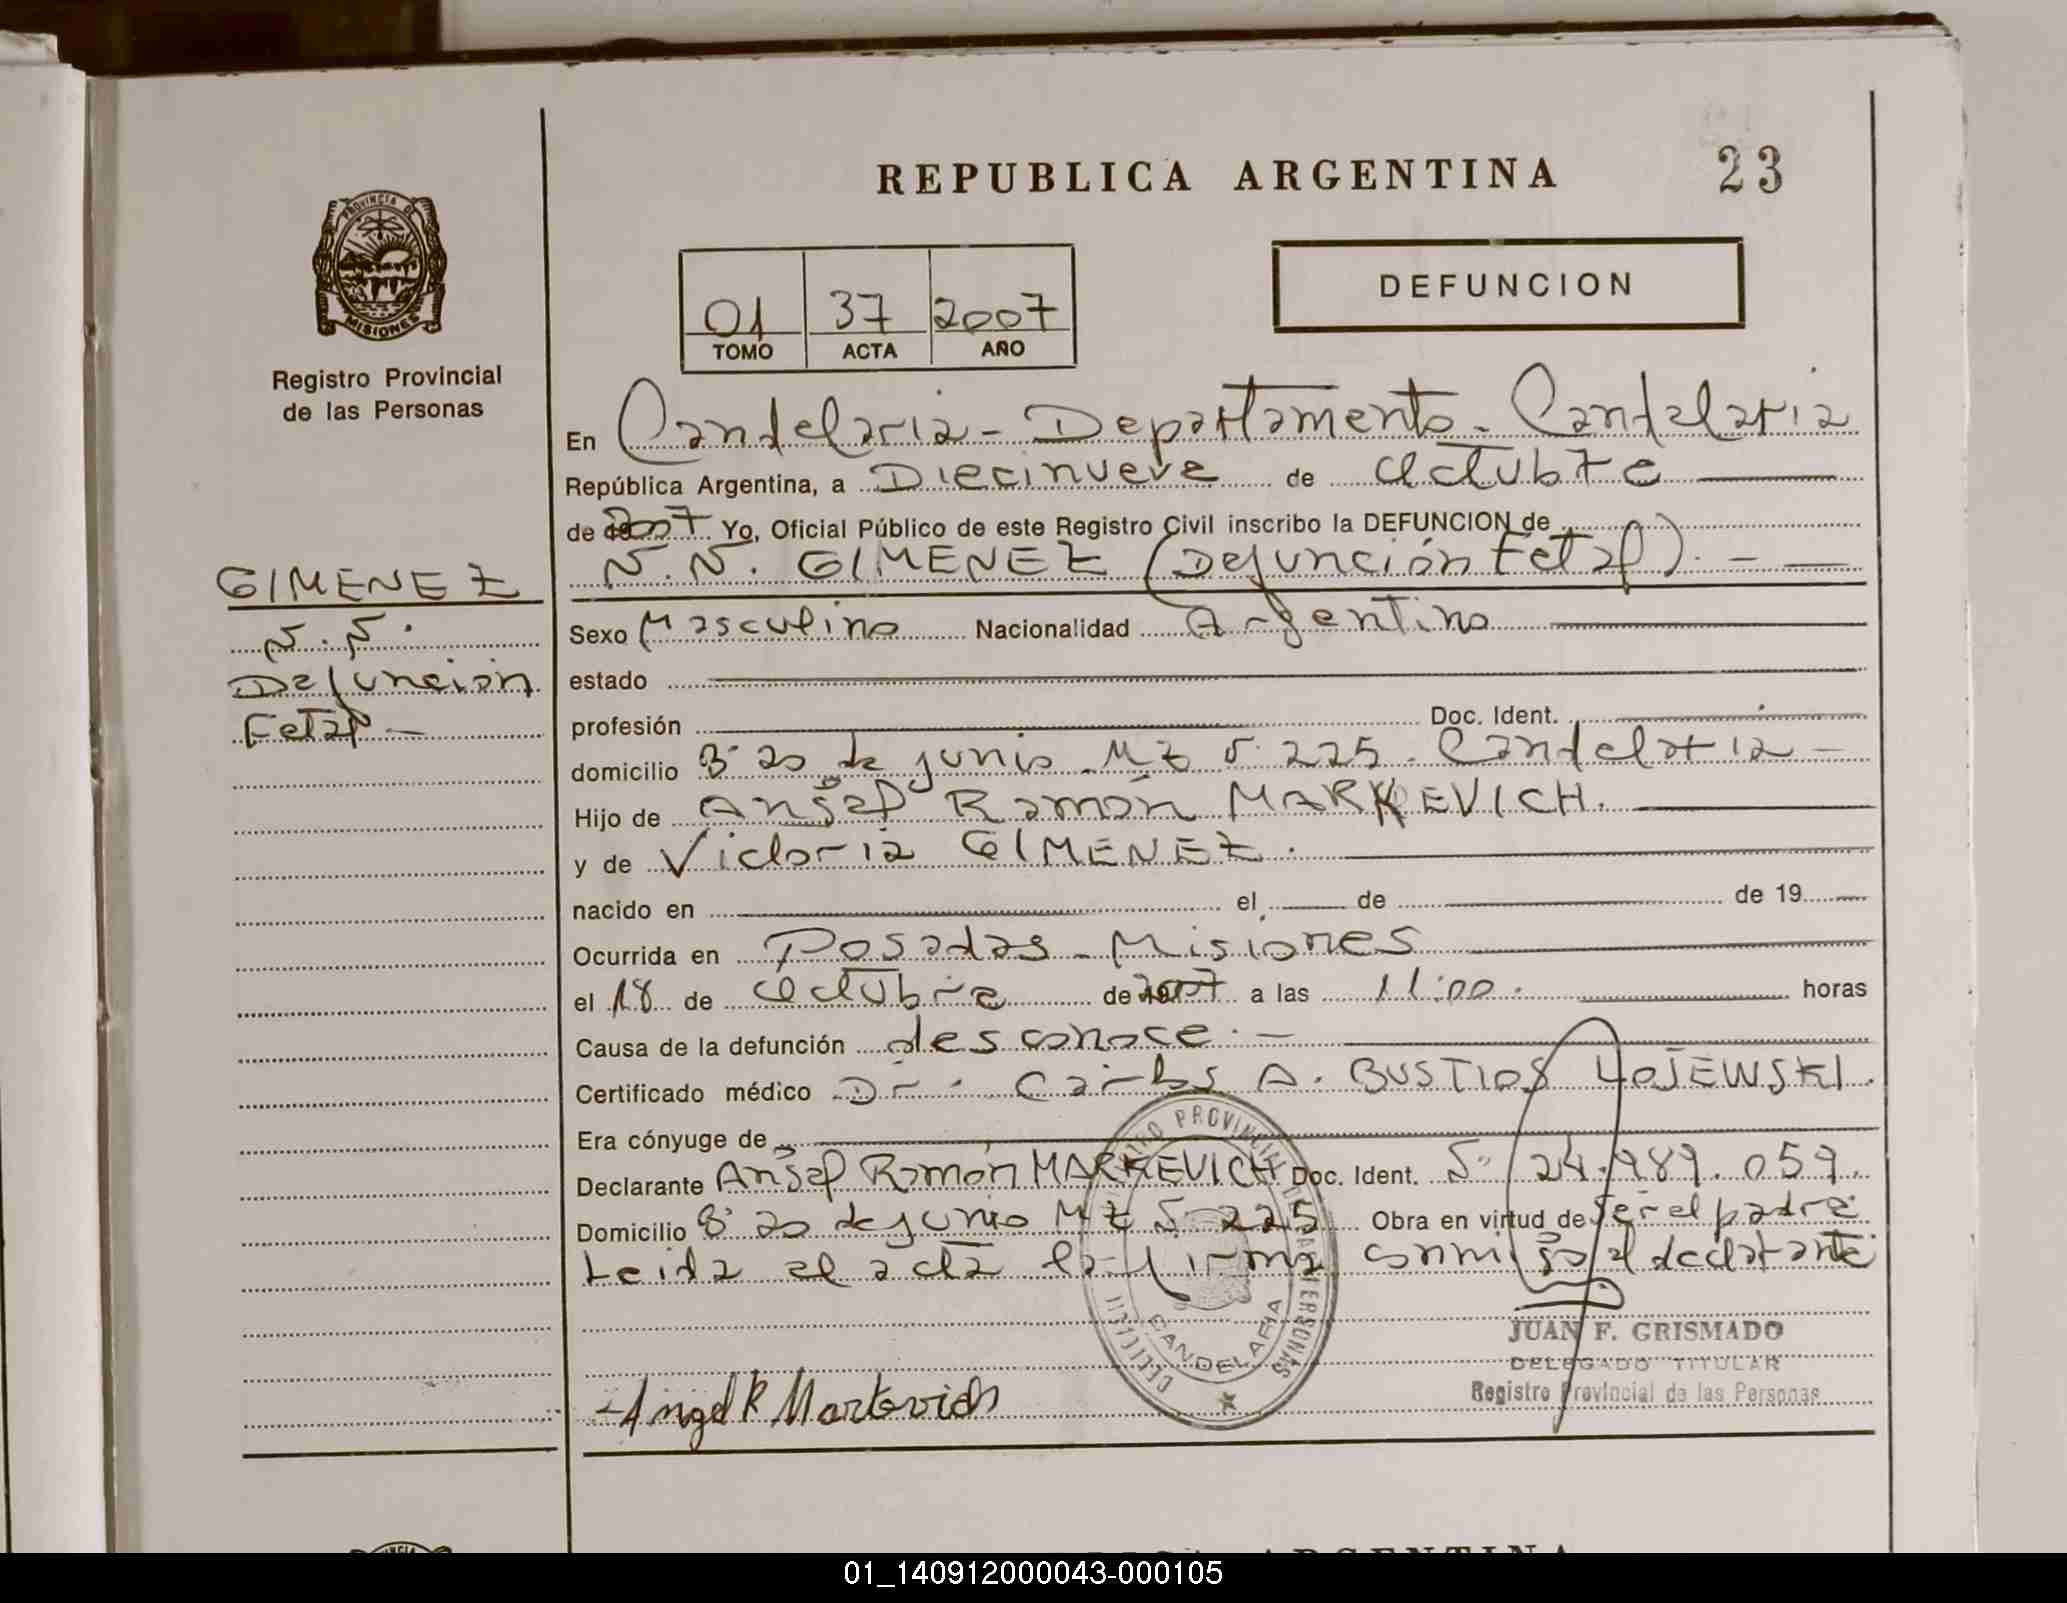 REPUBLICA ARGENTINA
23
PROVINCIA DE
MISIONES
Registro Provincial
de las Personas
01 37 2007
TOMO ACTA AÑO
DEFUNCION
En Candelaria - Departamento - Candelaria
República Argentina, a Diecinueve de Octubre
de 2007 Yo, Oficial Público de este Registro Civil inscribo la DEFUNCION de
N.N. GIMENEZ (Defunción Fetal). -
GIMENEZ
N.N.
Defunción
Fetal -
Sexo Masculino Nacionalidad Argentino
estado
profesión Doc. Ident.
domicilio Bº 20 de junio Mz Nº 225 - Candelaria -
Hijo de Angel Ramón MARKEVICH.
y de Victoria GIMENEZ.
nacido en el de de 19
Ocurrida en Posadas - Misiones
el 18 de Octubre de 2007 a las 11:00. horas
Causa de la defunción desconoce. -
Certificado médico Dr. Carlos A. BUSTIOS LOJEWSKI.
Era cónyuge de
Declarante Angel Ramón MARKEVICH Doc. Ident. Nº 24.989.059.
Domicilio Bº 20 de junio Mz Nº 225 Obra en virtud de ser el padre
Leida el acta la firma conmigo el declarante
JUAN F. GRISMADO
DELEGADO TITULAR
Registro Provincial de las Personas
Angel R Markevich
CANDELARIA
01_140912000043-000105